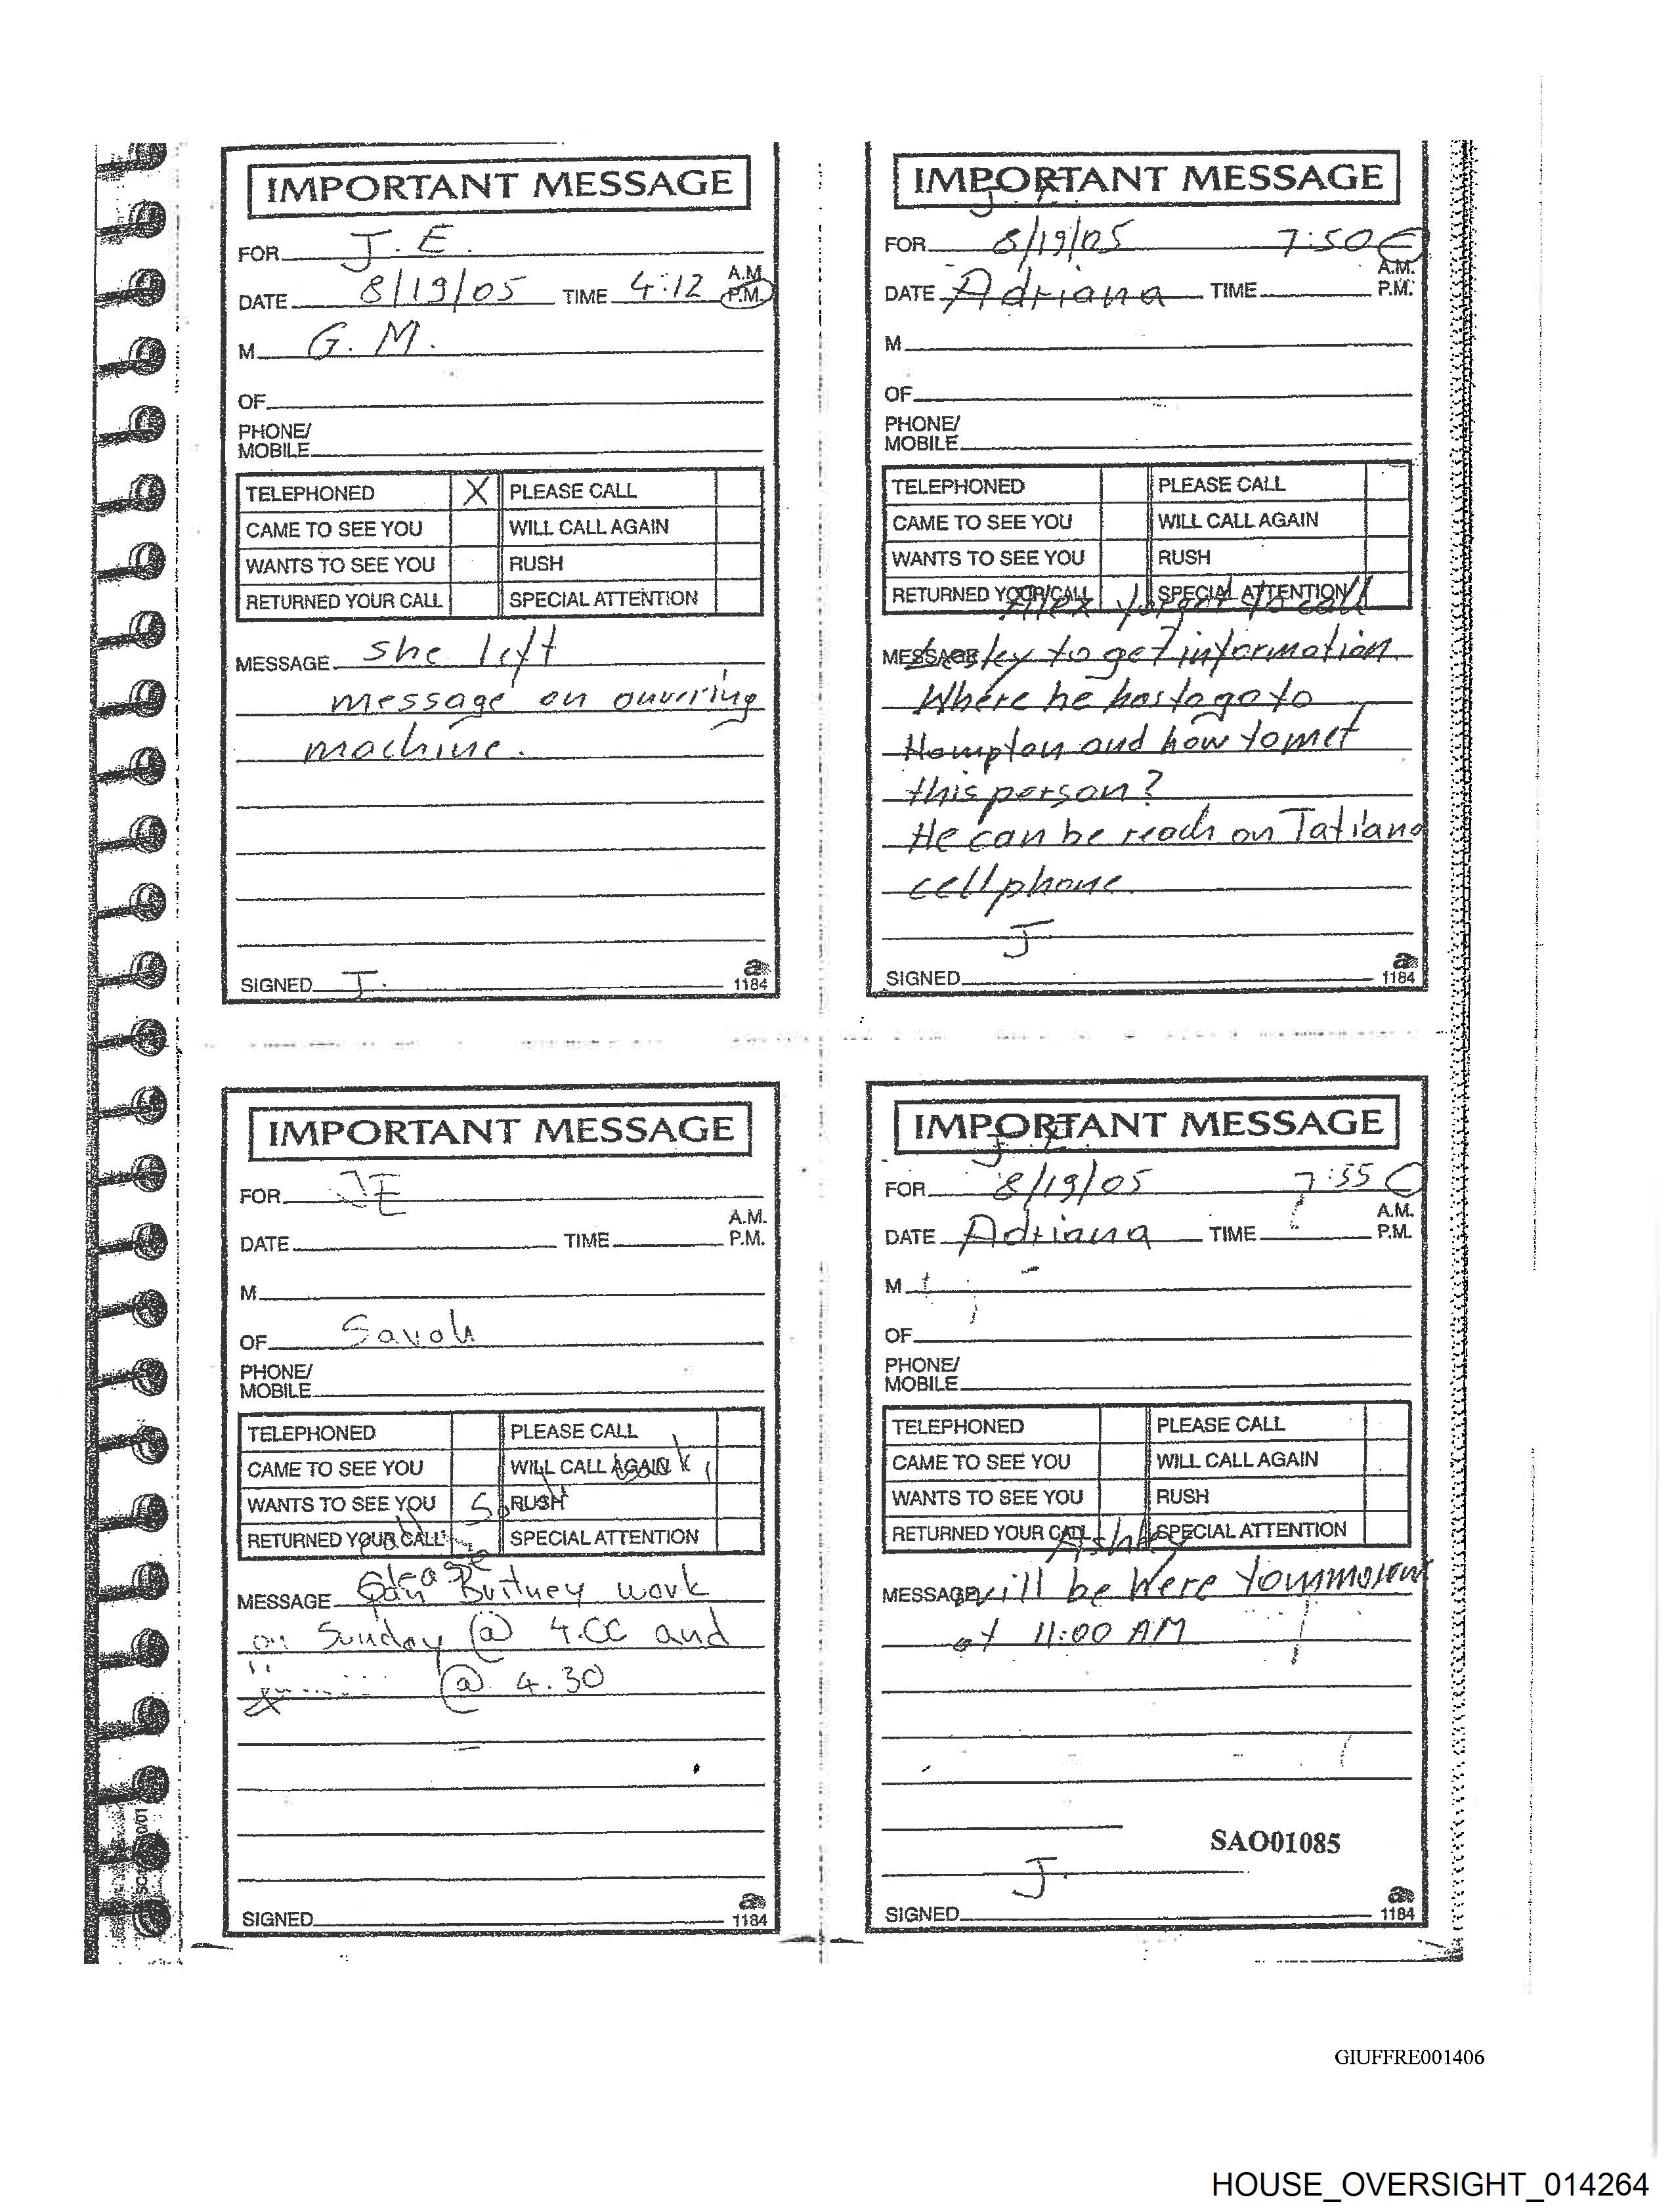 IMPORTANT MESSAGE
FOR J. E.
DATE 8/19/05 TIME 4:12 A.M. P.M.
M G. M.
OF
PHONE/
MOBILE
TELEPHONED X PLEASE CALL
CAME TO SEE YOU WILL CALL AGAIN
WANTS TO SEE YOU RUSH
RETURNED YOUR CALL SPECIAL ATTENTION
MESSAGE she left
message on
machine.
SIGNED J.
1184
IMPORTANT MESSAGE
J. E.
FOR 8/19/05 7:50
DATE Adriana TIME A.M. P.M.
M
OF
PHONE/
MOBILE
TELEPHONED PLEASE CALL
CAME TO SEE YOU WILL CALL AGAIN
WANTS TO SEE YOU RUSH
RETURNED YOUR CALL SPECIAL ATTENTION
Alex forget to call
MESSAGE to get information
Where he has to go to
Hampton and how to met
this person?
He can be reach on Tatiana
cellphone.
J
SIGNED
1184
IMPORTANT MESSAGE
FOR JE
DATE TIME A.M. P.M.
M
OF Sarah
PHONE/
MOBILE
TELEPHONED PLEASE CALL
CAME TO SEE YOU WILL CALL AGAIN
WANTS TO SEE YOU RUSH
RETURNED YOUR CALL SPECIAL ATTENTION
call Sarah back,
please
MESSAGE Can Britney work
on Sunday @ 4.00 and
@ 4.30
SIGNED
1184
IMPORTANT MESSAGE
J. E.
FOR 8/19/05 7:55
DATE Adriana TIME A.M. P.M.
M
OF
PHONE/
MOBILE
TELEPHONED PLEASE CALL
CAME TO SEE YOU WILL CALL AGAIN
WANTS TO SEE YOU RUSH
RETURNED YOUR CALL SPECIAL ATTENTION
Ashley
MESSAGE will be here
at 11:00 AM
SAO01085
J.
SIGNED
1184
GIUFFRE001406
HOUSE_OVERSIGHT_014264